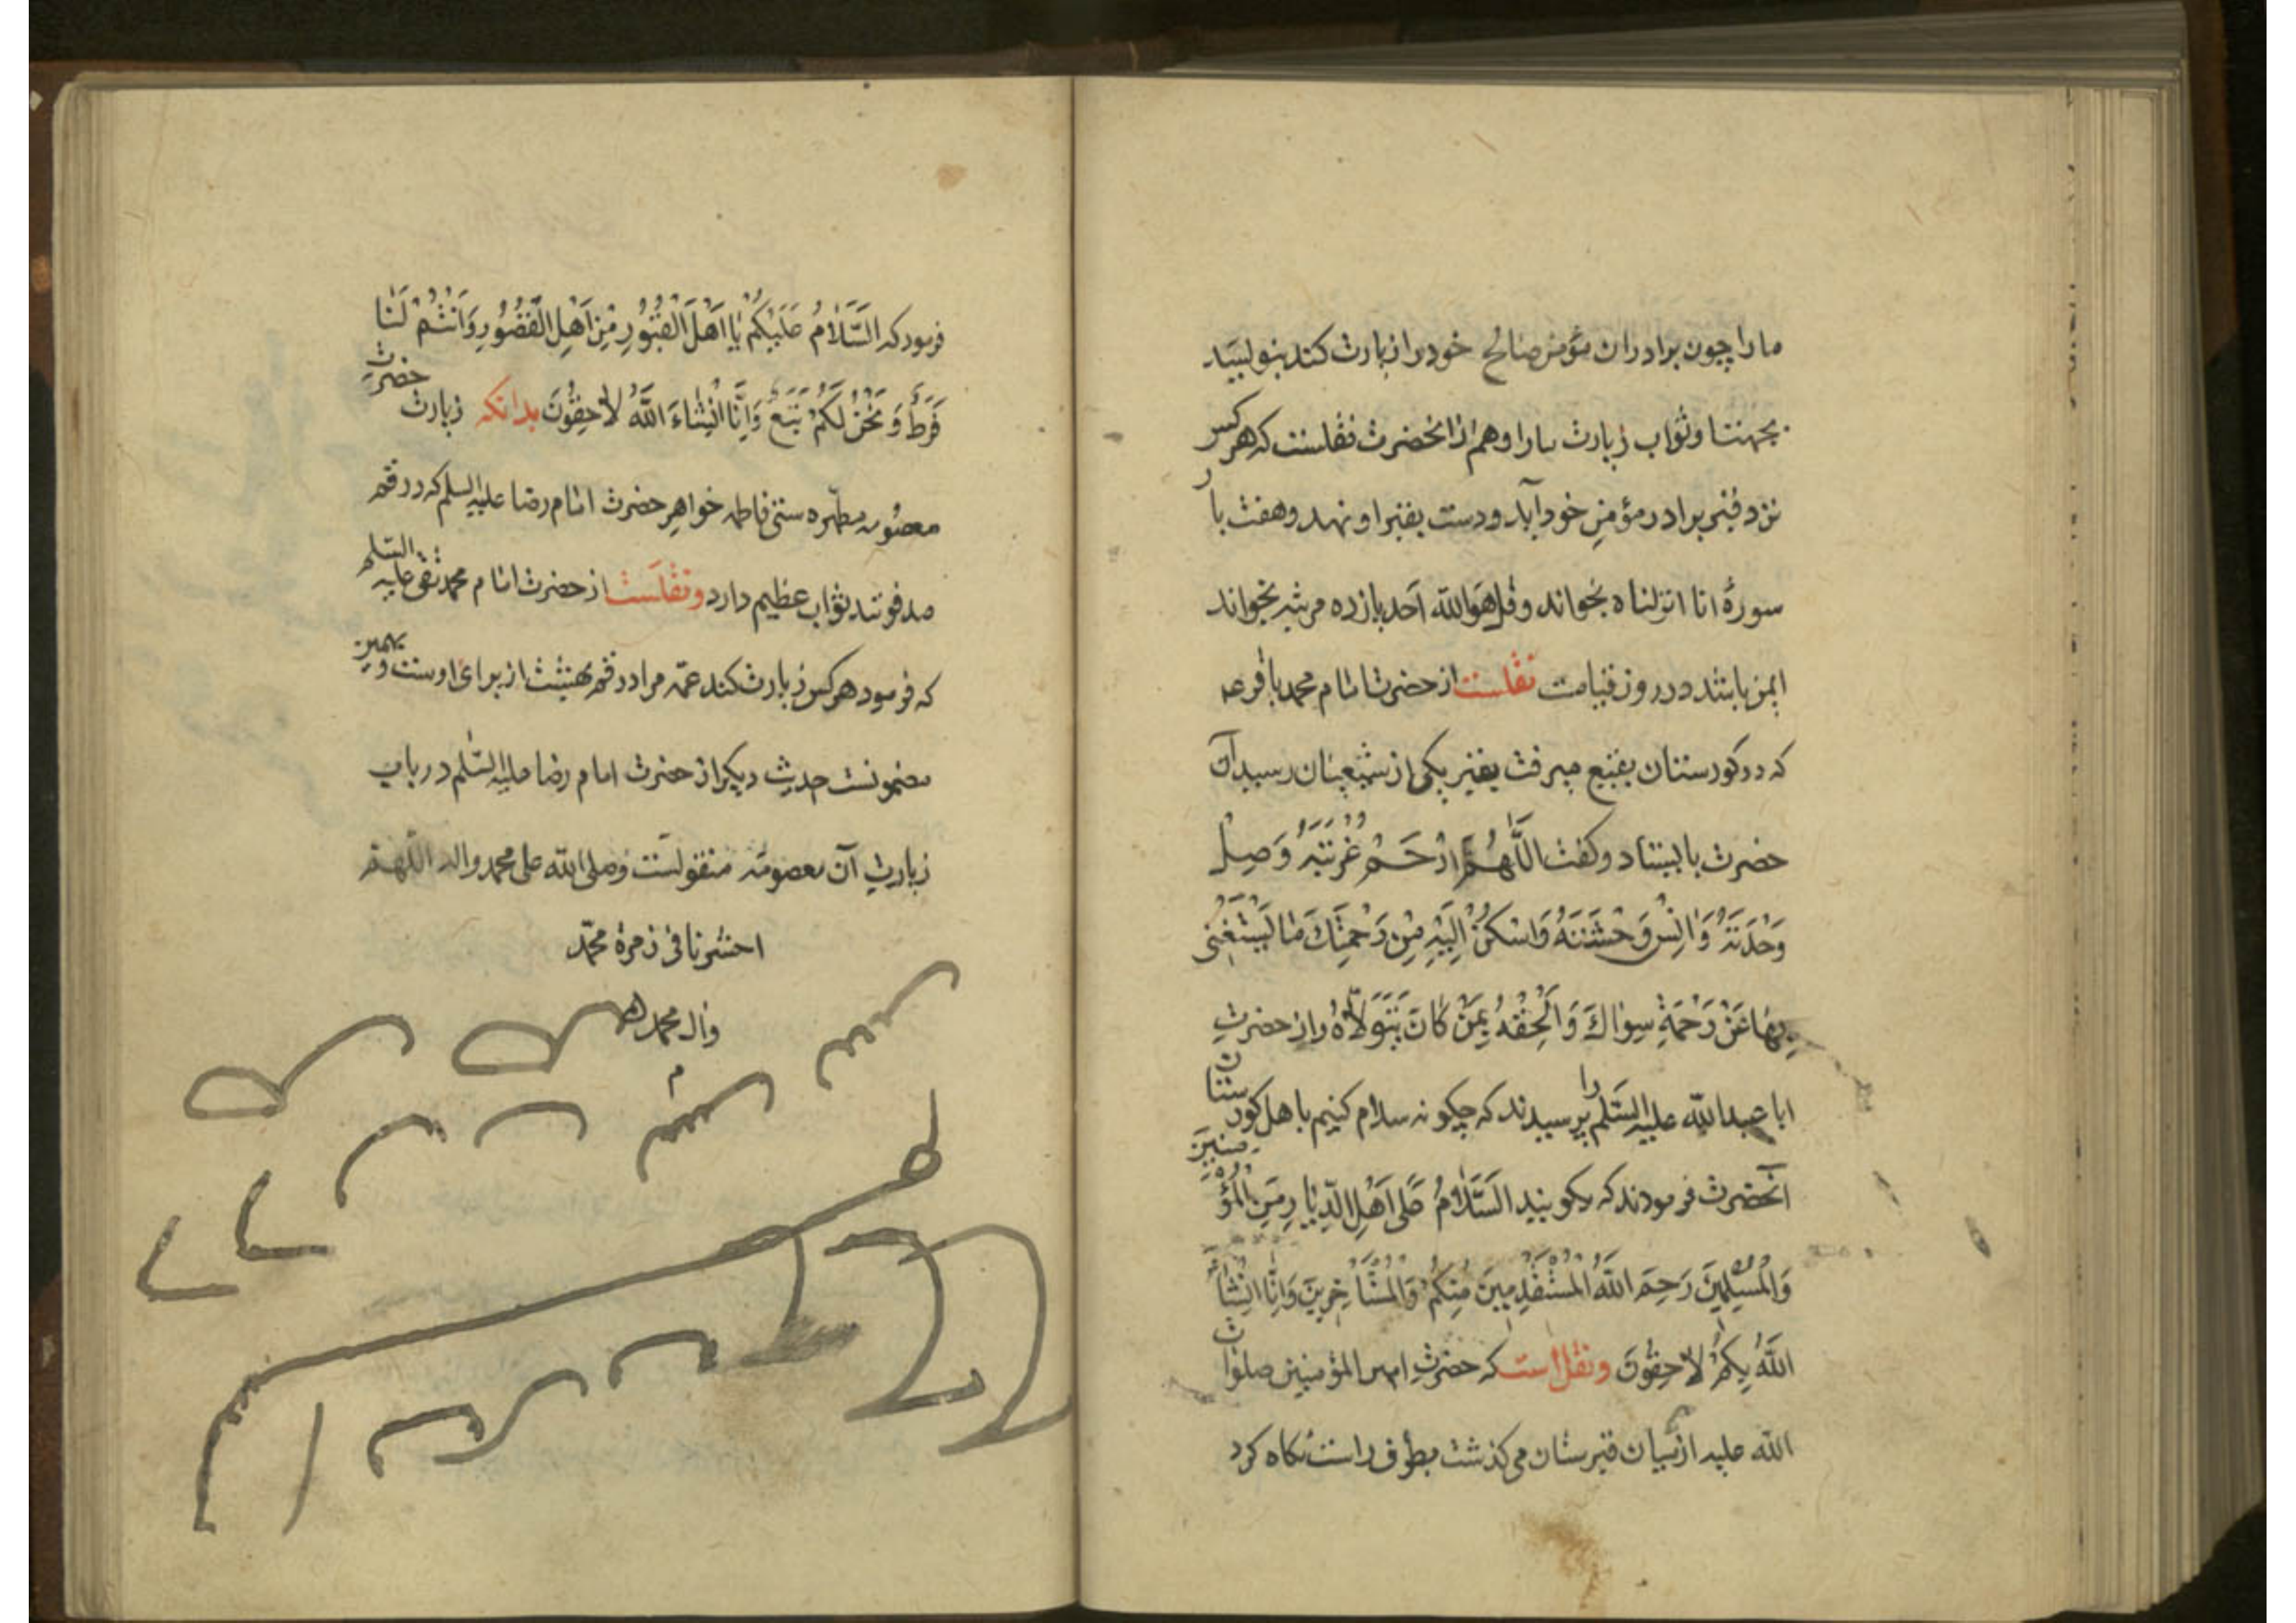 ما را چون برادران مؤمن صالح خود را زیارت کند بنویسید
بجهت ما و ثواب زیارت ما را و هم از آنحضرت نقلست که هر کس
نزد قبر برادر مؤمن خود آید و دست بقبر او نهد و هفت بار
سورهٔ انا انزلناه بخواند و قل هو الله احد یازده مرتبه بخواند
ایمن باشد در روز قیامت نقلست از حضرت امام محمد باقر عه
که در کورستان بقیع میرفت بقبر یکی از شیعیان رسید آن
حضرت بایستاد و کفت اَللّٰهُمَّ ارْحَمْ غُرْبَتَهُ وَصِلْ
وَحْدَتَهُ وَاٰنِسْ وَحْشَتَهُ وَاسْكُنْ اِلَيْهِ مِنْ رَحْمَتِكَ مٰا يَسْتَغْنى
بِهٰا عَنْ رَحْمَةِ سِوٰاكَ وَ اَلْحِقْهُ بِمَنْ كٰانَ يَتَوَلّاٰهُ و از حضرت
ابا عبدالله علیه السّلم را پرسیدند که چکونه سلام کنیم باهل کورستان
آنحضرت فرمودند که بکویید اَلسَّلٰامُ عَلىٰ اَهْلِ الدِّيٰارِ مِنَ الْمُؤْمِنينَ
وَالْمُسْلِمينَ رَحِمَ اللهُ الْمُسْتَقْدِمينَ مِنْكُمْ وَالْمُسْتَأْخِرينَ وَاِنّٰا اِنْشٰاءَ
اللهُ بِكُمْ لٰاحِقُونَ و نقل است که حضرت امیر المؤمنین صلوات
الله علیه از میان قبرستان می کذشت بطرف راست نکاه کرد
فرمود که اَلسَّلٰامُ عَلَيْكُمْ يٰا اَهْلَ الْقُبُورِ مِنْ اَهْلِ الْقُصُورِ وَ اَنْتُمْ لَنٰا
فَرَطٌ وَ نَحْنُ لَكُمْ تَبَعٌ وَ اِنّٰا اِنْشٰاءَ اللهُ لٰاحِقُونَ بدانکه زیارت حضرت
معصومه مطهّره ستّی فاطمه خواهر حضرت امام رضا علیه السلم که در قم
مدفونند ثواب عظیم دارد و نقلست از حضرت امام محمد تقی علیه السلم
که فرمود هر کس زیارت کند عمّه مرا در قم بهشت از برای اوست و بهمین
مضمونست حدیث دیکر از حضرت امام رضا علیه السّلم در باب
زیارت آن معصومه منقولست و صلی الله علی محمد و اله اللهم
احشرنا فی زمرة محمّد
و ال محمد
م